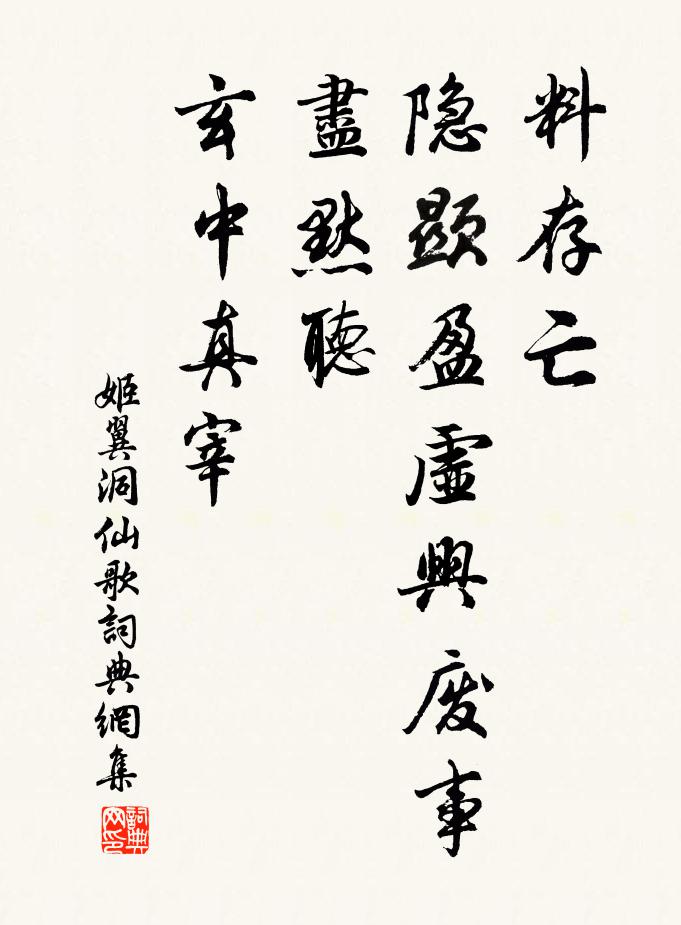 料存亡
隐顯盈虛興废事
盡默聽
玄中真宰
姬翼洞仙歌詞典網集
詞典网印